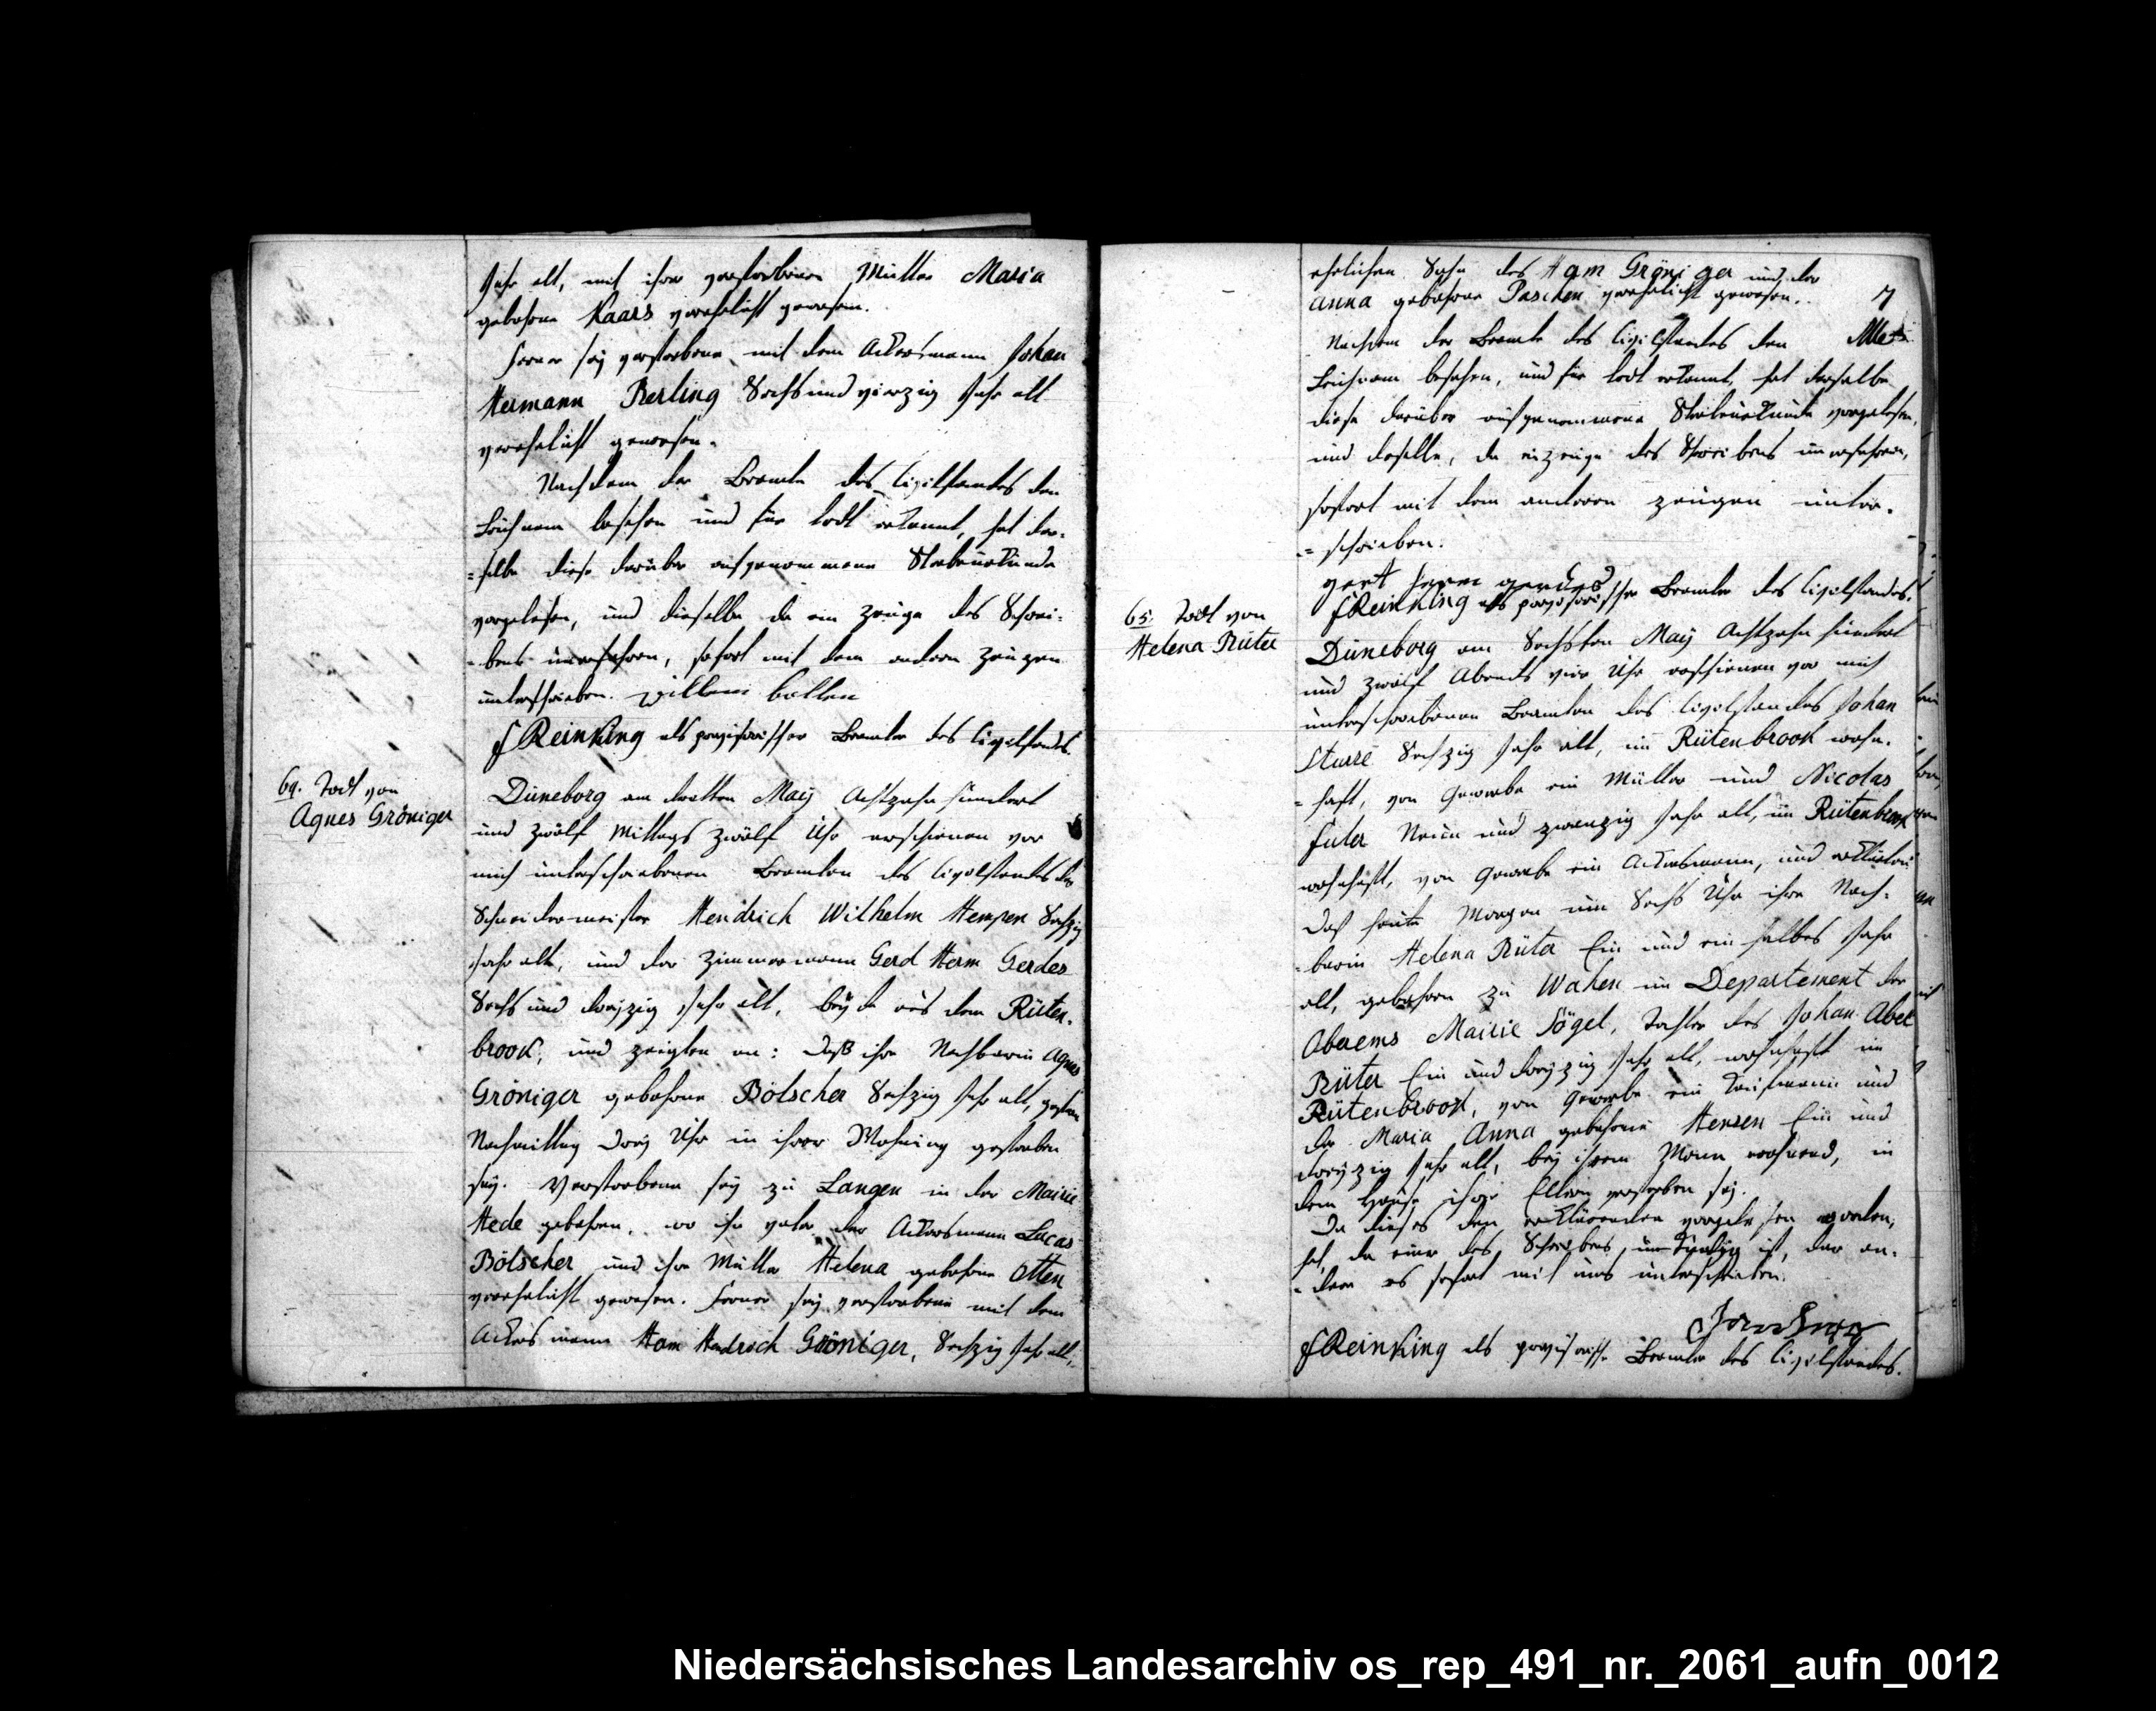 Jahr alt, mit ihrer verstorbenen Mutter Maria
gebohrne Kaars verehelicht gewesen.
Ferner sey verstorbene mit dem Ackersmann Johan
Hermann Berling Sechs und vierzig Jahr alt
verehelicht gewesen.
Nachdem der Beamte des Civilstandes den
Leichnam besehen und für todt erkannt, hat der-
=selbe diese darüber aufgenommene Sterbeurkunde
vorgelesen, und dieselbe da ein Zeuge des Schrei-
=bens unerfahren, sofort mit dem andern Zeugen
unterschrieben. Willem
FReinking als provisorischer Beamter des Civilstands
64. Todt von
Agnes Gröniger
Düneborg am dritten May Achtzehn hundert
und zwölf Mittags zwölf Uhr erschienen vor
mich unterschriebenen Beamten des Civilstandes der
Schneidermeister Hendrich Wilhelm Hempen Sechzig
Jahr alt, und der Zimmermann Gerd Herm Gerdes
Sechs und dreyzig Jahr alt, beyde aus dem Rüten-
brook, und zeigten an: daß ihre Nachbarin Agnes
Gröniger gebohrne Bölscher Sechzig Jahr alt, gestern
Nachmittag drey Uhr in ihrer Wohnung gestorben
sey. Verstorbene sey zu Langen in der Mairie
Hede gebohren, wo ihr Vater der Ackersmann Lucas
Bölscher und ihre Mutter Helena gebohrne Otten
verehelicht gewesen. Ferner sey verstorbene mit dem
Ackersmann Ham Hendrich Gröniger, Sechzig Jahr alt,
7
ehelichen Sohn des Ham Gröniger und der
Anna gebohrne Paschen verehelicht gewesen.
Nachdem der Beamte des Civilstandes den
Leichnam besehen, und für todt erkannt, hat derselbe
diese darüber aufgenommene Sterbeurkunde vorgelesen,
und dieselbe, da ein Zeuge des Schreibens unerfahren,
sofort mit dem anderen Zeugen unter-
=schrieben.
gert herm gerdes
FReinking als provisorischer Beamter des Civilstandes.
65. Todt von
Helena Rüter
Düneborg am Sechsten May Achtzehn hundert
und zwölf Abends vier Uhr erschienen vor mich
unterschriebenen Beamten des Civilstandes Johan
Sturre Sechzig Jahr alt, im Rütenbrook wohn-
=haft, von Gewerbe ein Müller und Nicolas
Neun und zwanzig Jahr alt, im Rütenbrook
wohnhaft, von Gewerbe ein Ackersmann, und erklärten
daß heute Morgen um Sechs Uhr ihre Nach-
=barin Helena Rüter Ein und ein halbes Jahr
alt, gebohren zu Wahen im Departement der
Oberems Mairie Sögel, Tochter des Johan Abel
Rüter Ein und dreyzig Jahr alt, wohnhaft im
Rütenbrook, von Gewerbe ein Kaufmann und
der Maria Anna gebohrne Hensen Ein und
dreyzig Jahr alt, bey ihrem Mann wohnend, in
dem Hause ihrer Eltern verstorben sey.
Da dieses den erklärenden vorgelesen worden,
hat, da einer des Schreibens unkundig ist, der an-
=dere es sofort mit uns unterschrieben.
FReinking als provisorischer Beamter des Civilstandes.
Niedersächsisches Landesarchiv os_rep_491_nr._2061_aufn_0012